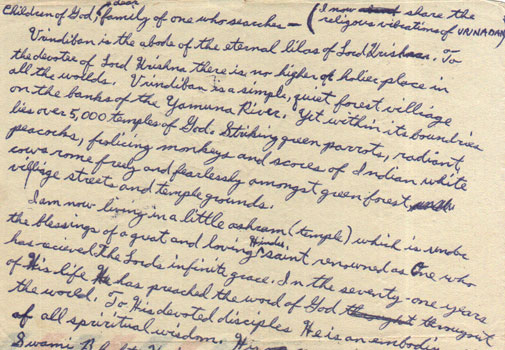 dear
Children of God, family of one who searches – (I now share the
religous vibrations of VRNDABAN)
Vrindiban is the abode of the eternal lilas of Lord Krishna. To
the devotee of Lord Krishna there is no higher or holier place in
all the worlds. Vrindiban is a simple, quiet forest villiage
on the banks of the Yamuna River. Yet within its boundries
lies over 5,000 temples of God. Striking green parrots, radiant
peacocks, frolicing monkeys and scores of Indian white
cows rome freey and fearlessly amongst green forest,
villiage streets and temple grounds.
I am now living in a little ashram (temple) which is under
the blessings of a great and loving Hindu saint, renowned as One who
has recieved the Lords infinite grace. In the seventy-one years
of His life He has preached the word of God througout
the world. To His devoted disciples He is an embodie
of all spiritual wisdom. His
Swami B